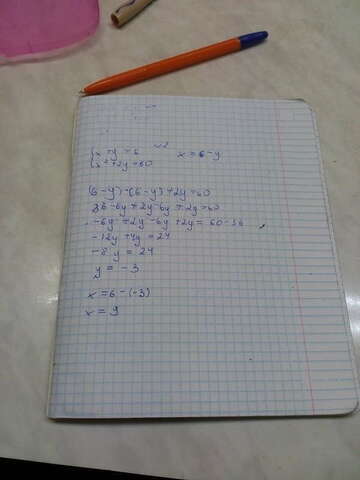 x + y = 6 x = 6 - y
x² + 2y = 60
(6-y)·(6-y)+2y=60
36-6y+2y-6y+2y=60
-6y+2y-6y+2y=60-36
-12y+4y=24
-8y=24
y=-3
x=6-(-3)
x=9